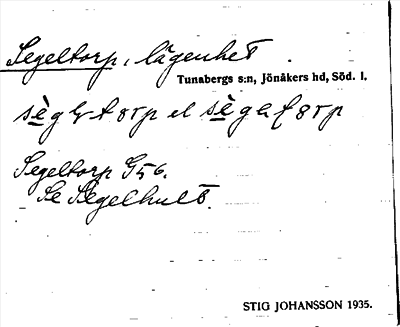 Segeltorp, lägenhet
Tunabergs s:n, Jönåkers hd, Söd. l.
el
Segeltorp G56.
Se Segelhult.
STIG JOHANSSON 1935.